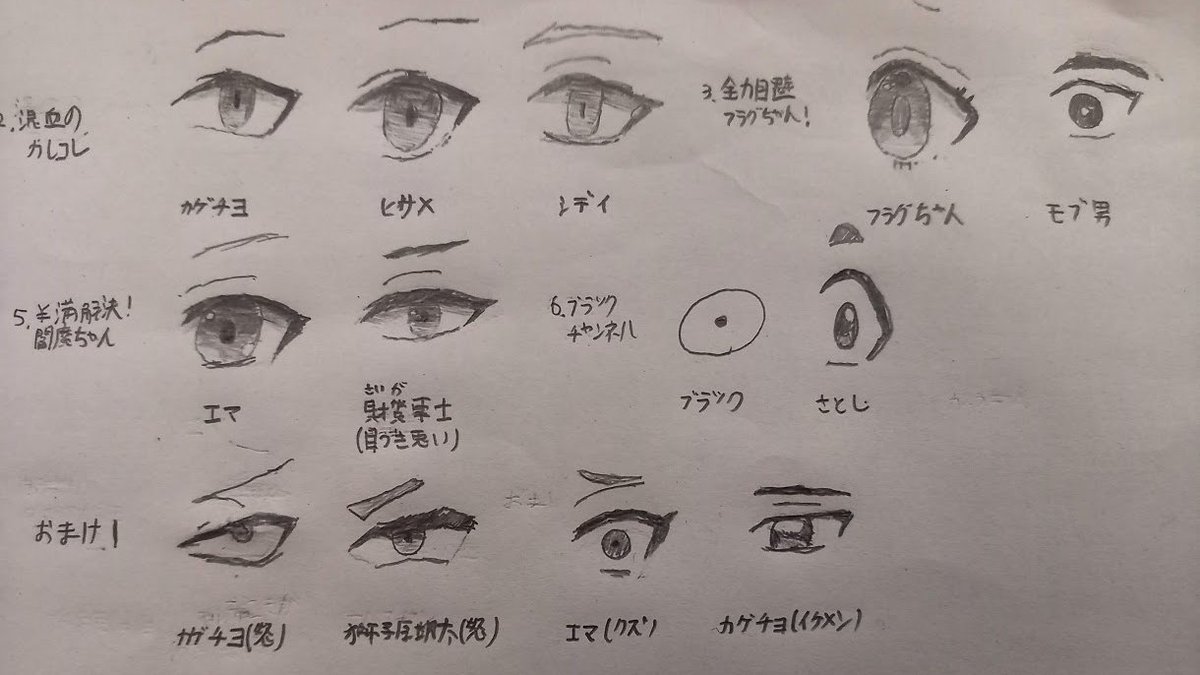 2. 混血の
カレコレ
カゲチヨ
ヒサメ
シディ
3. 全力回避
フラグちゃん!
フラグちゃん
モブ男
5. 半満解決!
閻魔ちゃん
エマ
さいが
財賀軍士
(目つき悪い)
6. ブラック
チャンネル
ブラック
さとし
おまけ1
カゲチヨ(怒)
獅子原朗太(怒)
エマ(クズ)
カゲチヨ(イケメン)